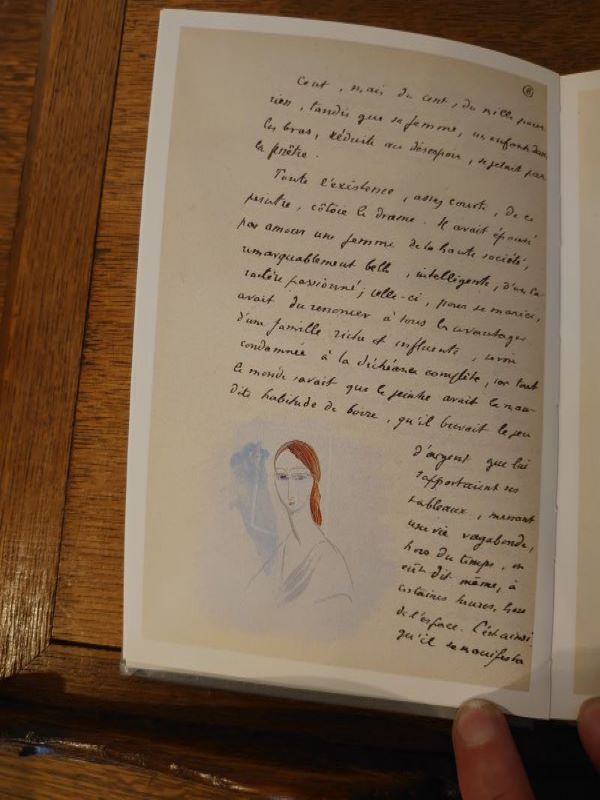 8
cent, mais du cent, du mille pour
rien, tandis que sa femme, un enfant dans
les bras, réduite au désespoir, se jetait par
la fenêtre.
Toute l'existence, assez courte, de ce
peintre, côtoie le drame. Il avait épousé
par amour une femme de la haute société,
remarquablement belle, intelligente, d'un ca-
ractère passionné; celle-ci, pour se marier,
avait du renoncer à tous les avantages
d'une famille riche et influente,
condamnée à la déchéance complète, car tout
le monde savait que le peintre avait la mau-
dite habitude de boire, qu'il buvait le peu
d'argent que lui
rapportaient ses
tableaux, menant
une vie vagabonde,
hors du temps, on
eût dit même, à
certaines heures, hors
de l'espace. C'est ainsi
qu'il se manifesta